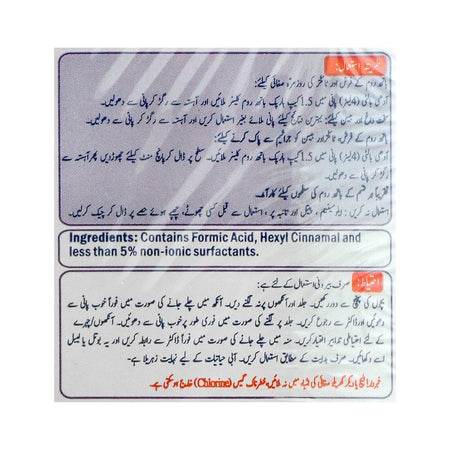 طریقۂ استعمال:
باتھ روم کے فرش اور ٹائلز کی روزمرہ صفائی کیلئے:
آدھی بالٹی (4 لیٹر) پانی میں 1.5 کیپ ہارپک باتھ روم کلینر ملائیں اور آہستہ سے رگڑ کر پانی سے دھولیں۔
سخت داغ اور بیسن کیلئے: بہترین نتائج کیلئے پانی ملائے بغیر استعمال کریں اور آہستہ سے رگڑ کر پانی سے دھولیں۔
باتھ روم کے فرش، ٹائلز اور بیسن کو جراثیم سے پاک کرنے کیلئے:
آدھی بالٹی (4 لیٹر) پانی میں 1.5 کیپ ہارپک باتھ روم کلینر ملائیں۔ سطح پر ڈال کر پانچ منٹ کیلئے چھوڑدیں پھر آہستہ سے
رگڑ کر پانی سے دھولیں۔
تقریباً ہر قسم کے باتھ روم کی سطحوں کیلئے کارآمد۔
استعمال نہ کریں: ایلومینیم، پیتل اور تانبے پر، استعمال سے قبل کسی چھوٹے، چھپے ہوئے حصے پر ڈال کر چیک کرلیں۔
Ingredients: Contains Formic Acid, Hexyl Cinnamal and
less than 5% non-ionic surfactants.
احتیاط: صرف بیرونی استعمال کے لئے ہے:
بچوں کی پہنچ سے دور رکھیں۔ جلد اور آنکھوں پر نہ لگنے دیں۔ آنکھ میں چلے جانے کی صورت میں فوراً خوب پانی سے
دھوئیں اور ڈاکٹر سے رجوع کریں۔ جلد پر لگنے کی صورت میں فوری طور پر خوب پانی سے دھوئیں۔ آنکھوں/چہرے
کے لئے احتیاطی تدابیر اختیار کریں۔ منہ میں چلے جانے کی صورت میں فوراً ڈاکٹر سے رابطہ کریں اور یہ بوتل یا لیبل
اسے دکھائیں۔ صرف ہدایت کے مطابق استعمال کریں۔ آبی حیاتیات کے لئے نہایت زہریلا ہے۔
خبردار! بلیچ یا دیگر گھریلو صفائی کی اشیاء میں نہ ملائیں، خطرناک گیس (Chlorine) خارج ہوسکتی ہے۔